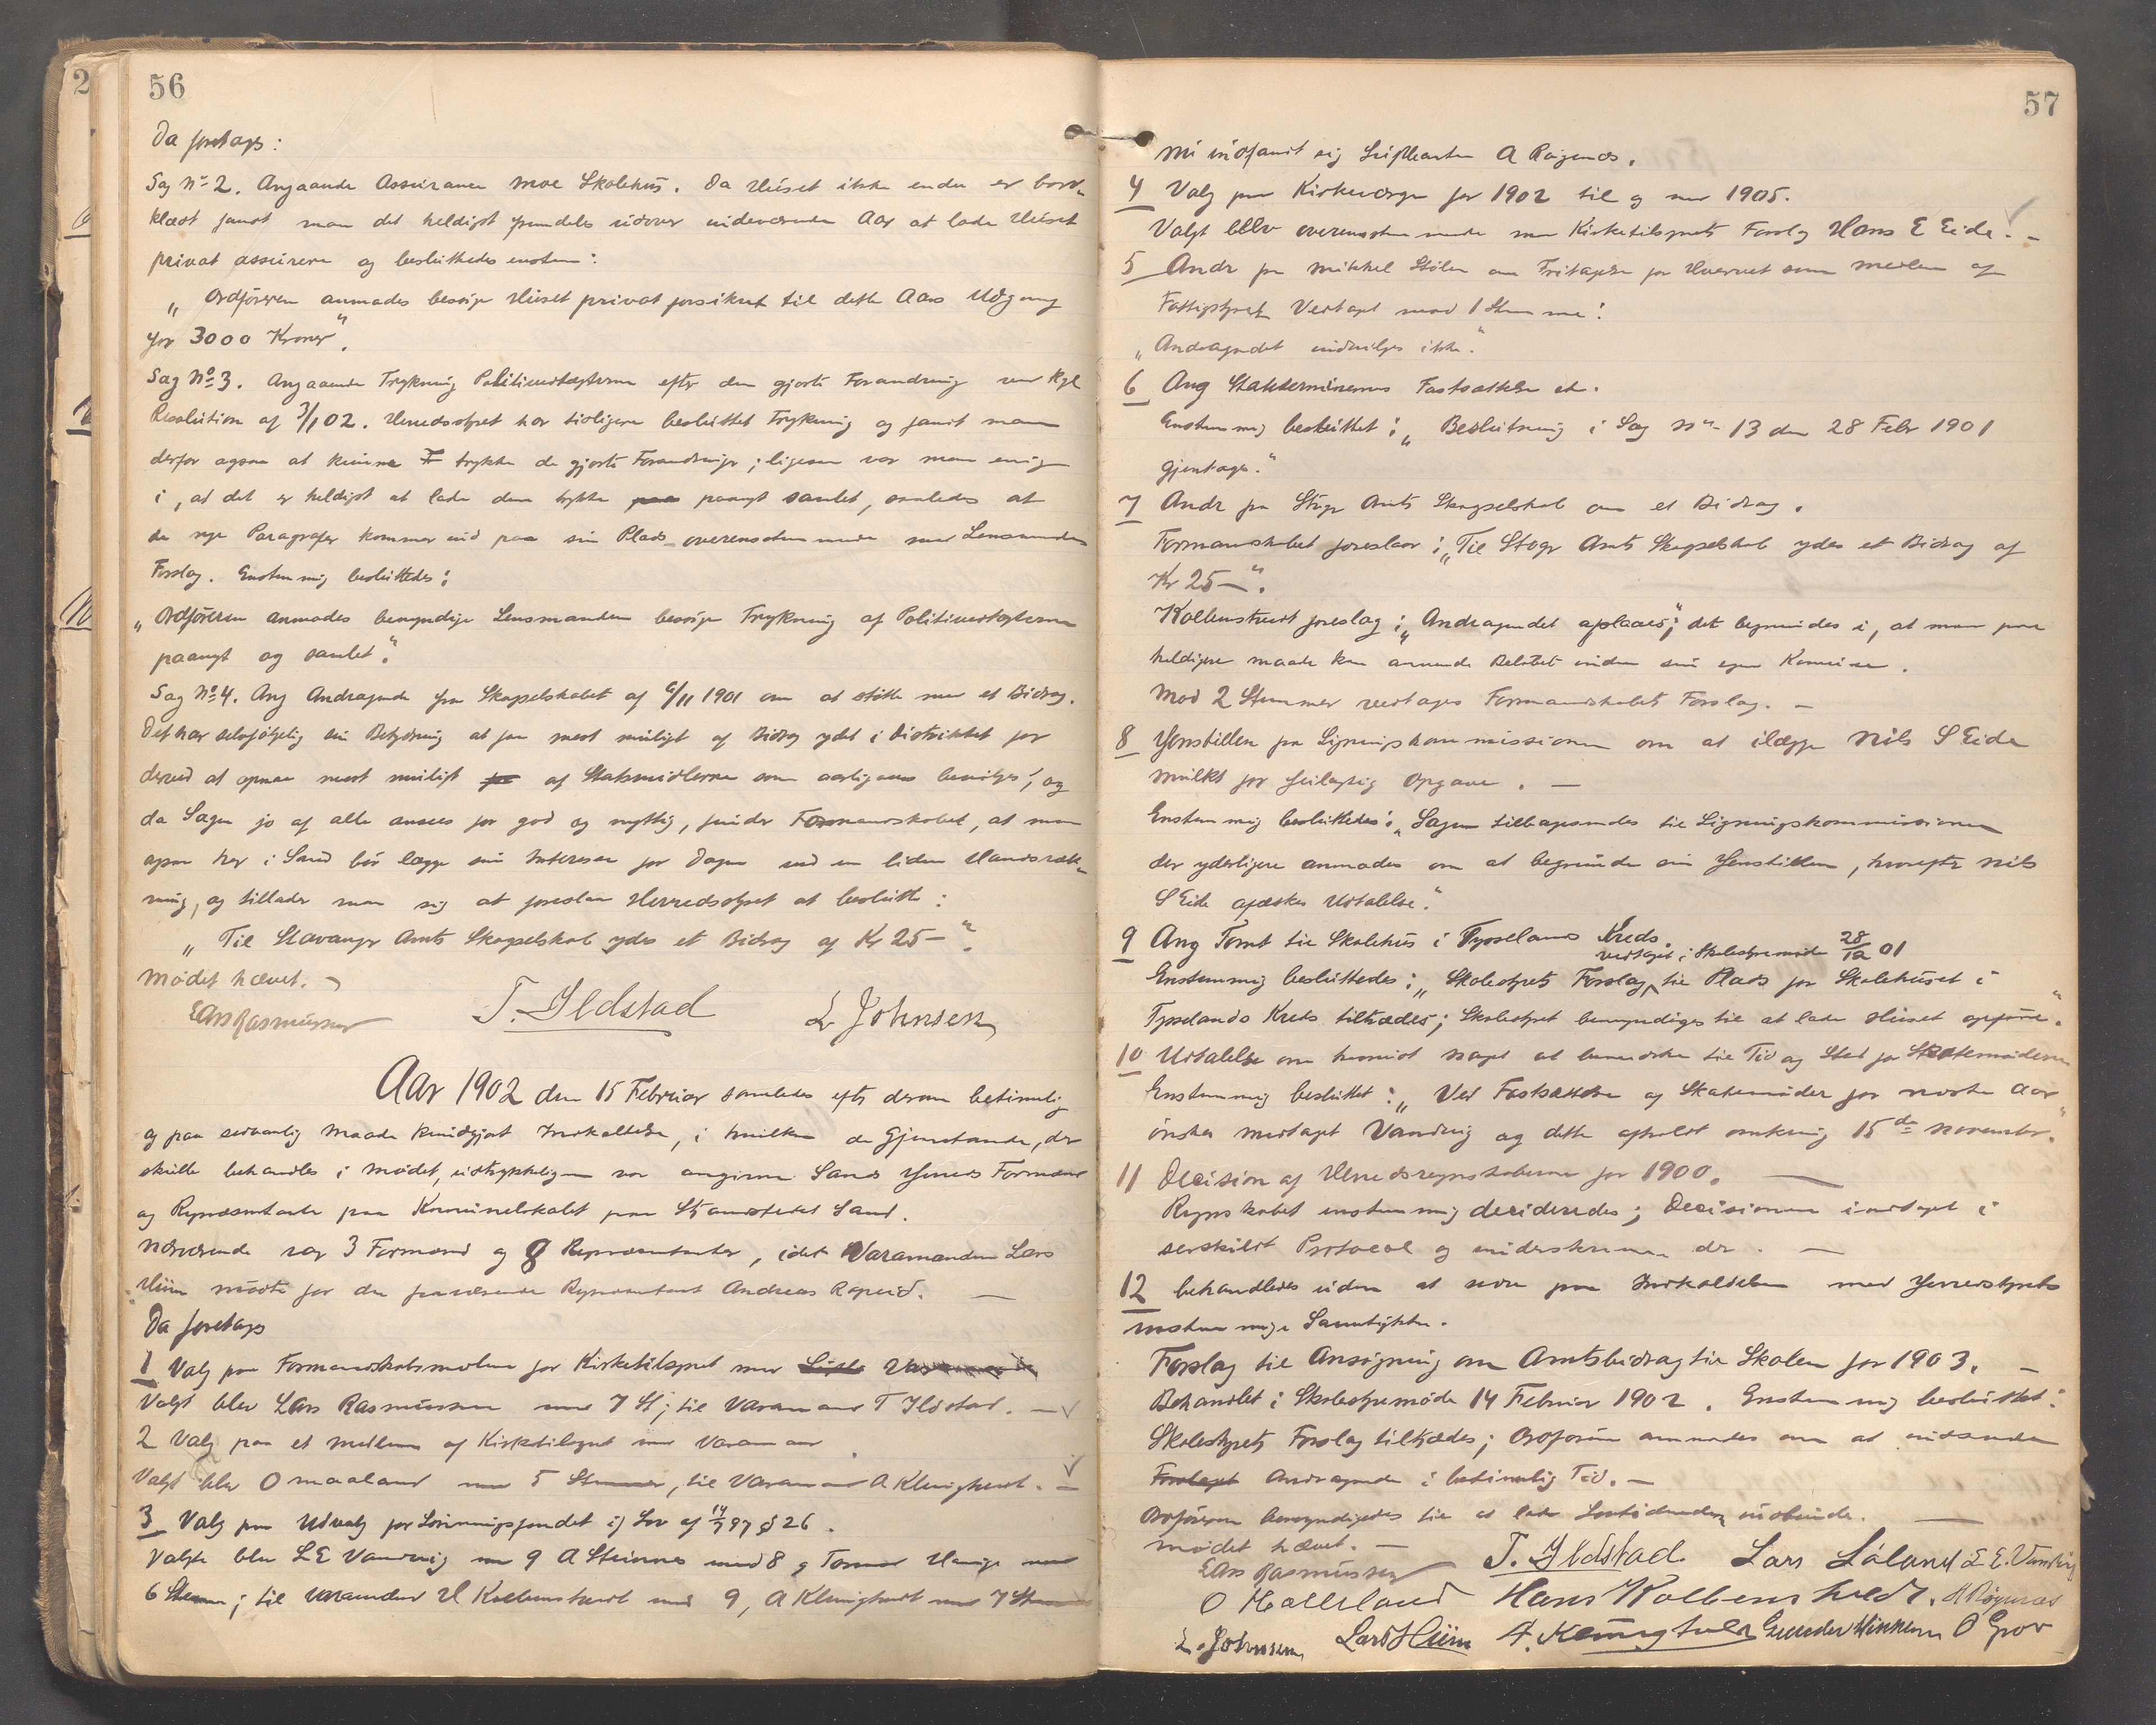 56
Da foretages:
Sag No 2. Angaaende Assurance Moe Skolehus. Da Huset ikke endnu er bord-
klædt fandt man det heldigst fremdeles udover indeværende Aar at lade Huset
privat assurere og besluttedes enstem:
„Ordføreren anmodes besørge Huset privat forsikret til dette Aars Udgang
for 3000 Kroner".
Sag No 3. Angaaende Trykning Politivedtægterne efter den gjorte Forandring ved Kgl
Resolution af 3/1 02. Herredsstyret har tidligere besluttet Trykning og fandt man
derfor ogsaa at kunne trykke de gjorte Forandringer; ligesom var man enig
i, at det er heldigst at lade dem trykke paanyt samlet, saaledes at
de nye Paragrafer kommer ind paa sin Plads overensstemmende med Lensmandens
Forslag. Enstemmig besluttedes:
„Ordføreren anmodes bemyndige Lensmanden besørge Trykning af Politivedtægterne
paanyt og samlet".
Sag No 4. Ang Andragende fra Skogselskabet af 6/11 1901 om at støtte med et Bidrag.
Det har selvfølgelig sin Betydning at faa mest muligt af Bidrag ydet i Distriktet for
derved at opnaa mest muligt af Statsmidlerne som aarligaars bevilges; og
da Sagen jo af alle ansees for god og nyttig, finder Formandskabet, at man
ogsaa her i Sand bør lægge sin Interesse for Dagen ved en liden Haandsræk-
ning, og tillader man sig at foreslaa Herredsstyret at beslutte:
„Til Stavanger Amts Skogselskab ydes et Bidrag af Kr 25-".
Mødet hævet. -
Lars Rasmussen T. Ildstad L Johnsen
Aar 1902 den 15 Februar samledes efter derom betimelig
og paa sedvanlig Maade kundgjort Indkaldelse, i hvilken de Gjenstande, der
skulle behandles i Mødet, udtrykkeligen var angivne Sands Herreds Formænd
og Repræsentanter paa Kommunelokalet paa Strandstedet Sand.
Nærværende var 3 Formænd og 8 Repræsentanter, idet Varamanden Lars
Hiim mødte for den fraværende Repræsentant Andreas Rapeid. -
Da foretages
1 Valg paa Formandskabsmedlem for Kirketilsynet med
Valgt blev Lars Rasmussen med 7 St; til Varamand T Ildstad. -
2 Valg paa et Medlem af Kirketilsynet med Varamand
Valgt blev O Maaland med 5 Stemmer, til Varamand A Klungtvedt. -
3 Valg paa Udvalg for Lønningsfondet ifl Lov af 14/7 97 § 26.
Valgte blev L E Vandvig med 9 A Steinnes med 8 og Tormod Hauge med
6 Stemmer; til Varamænd H Kolbenstvedt med 9, A Klungtvedt med 7 Stemmer
57
Nu indfandt sig Suppleanten A Røgenæs.
4 Valg paa Kirkeværge for 1902 til og med 1905.
Valgt blev overensstemmende med Kirketilsynets Forslag Hans E Eide. -
5 Andr fra Mikkel Stølen om Fritagelse for Hvervet som Medlem af
Fattigstyret Vedtaget mod 1 Stemme:
„Andragendet indvilges ikke."
6 Ang Skatterminernes Fastsættelse etc.
Enstemmig besluttet: „Beslutning i Sag No 13 den 28 Febr 1901
gjentages."
7 Andr fra Stvgr Amts Skogselskab om et Bidrag.
Formandskabet foreslaar: „Til Stvgr Amts Skogselskab ydes et Bidrag af
Kr 25-".
Kolbenstvedt foreslog: „Andragendet afslaaes"; det begrundes i, at man paa
heldigere Maade kan anvende Beløbet inden sin egen Kommune.
Mod 2 Stemmer vedtages Formandskabets Forslag. -
8 Henstillen fra Ligningskommissionen om at ilægge Nils S Eide
Mulkt for feilagtig Opgave. -
Enstemmig besluttedes: „Sagen tilbagesendes til Ligningskommissionen
der yderligere anmodes om at begrunde sin Henstillen, hvorefter Nils
S Eide afæskes Udtalelse."
9 Ang Tomt til Skolehus i Tysselands Kreds.
vedtaget i Skolestyremøde 28/12 01
Enstemmig besluttedes: „Skolestyrets Forslag til Plads for Skolehuset i
Tysselands Kreds tiltrædes; Skolestyret bemyndiges til at lade Huset opføre".
10 Udtalelse om hvorvidt noget at bemærke til Tid og Sted for Skattemøderne
Enstemmig besluttet: „Ved Fastsættelse af Skattemøder for næste Aar
ønskes medtaget Vandvig og dette afholdt omkring 15de November."
11 Decision af Herredsregnskaberne for 1900. -
Regnskabet enstemmig decideredes; Decisionen indtaget i
serskildt Protocol og underskreven der. -
12 behandledes uden at være paa Indkaldelsen med Herredsstyrets
enstemmige Samtykke.
Forslag til Ansøgning om Amtsbidrag til Skolen for 1903. -
Behandlet i Skolestyremøde 14 Februar 1902. Enstemmig besluttet:
Skolestyrets Forslag tiltrædes; Ordføreren anmodes om at indsende
Forslaget Andragende i betimelig Tid. -
Ordføreren bemyndigedes til at lade Lovtidende indbinde. -
Mødet hævet. -
Lars Rasmussen T. Ildstad Lars Løland L E. Vandvig
O Maaland Hans Kolbenstvedt. A Røgenæs
L. Johnsen Lars Hiim A. Klungtvedt O Grov